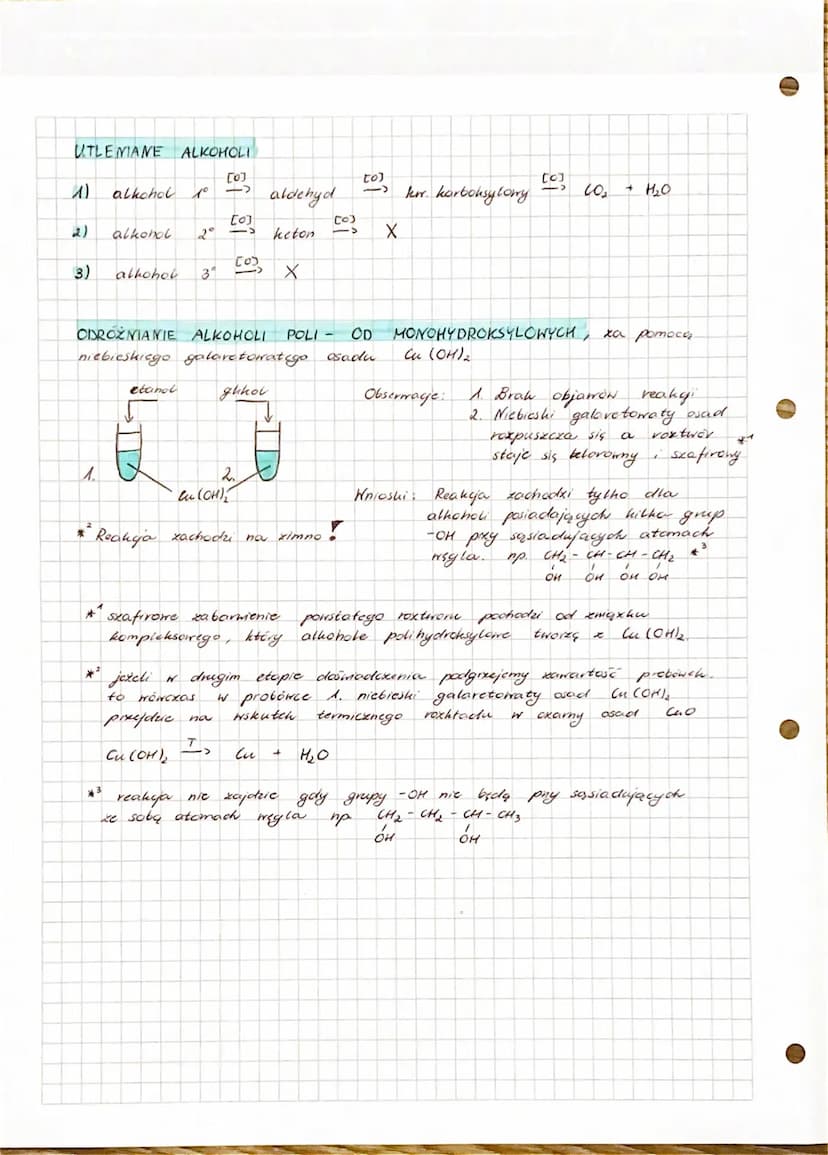 UTLENIANIE ALKOHOLI
1) alkohol 1° [O] → aldehyd [O] → kw. karboksylowy [O] → CO₂ + H₂O
2) alkohol 2° [O] → keton [O] → X
3) alkohol 3° [O] → X
ODRÓŻNIANIE ALKOHOLI POLI - OD MONOHYDROKSYLOWYCH, za pomocą
niebieskiego galaretowatego osadu Cu(OH)₂
etanol glikol
1. 2.
Cu(OH)₂
*² Reakcja zachodzi na zimno!
Obserwacje: 1. Brak objawów reakcji
2. Niebieski galaretowaty osad
rozpuszcza się a roztwór
staje się klarowny i szafirowy *¹
Wnioski: Reakcja zachodzi tylko dla
alkoholi posiadających kilka grup
-OH przy sąsiadujących atomach
węgla. np. CH₂ - CH - CH - CH₂ *³
OH OH OH OH
*¹ szafirowe zabarwienie powstałego roztworu pochodzi od związku
kompleksowego, który alkohole polihydroksylowe tworzą z Cu(OH)₂.
*² jeżeli w drugim etapie doświadczenia podgrzejemy zawartość probówek.
to wówczas w probówce 1. niebieski galaretowaty osad Cu(OH)₂
przejdzie na wskutek termicznego rozkładu w czarny osad CuO
Cu(OH)₂ T → Cu + H₂O
*³ reakcja nie zajdzie gdy grupy -OH nie będą przy sąsiadujących
ze sobą atomach węgla np CH₂ - CH₂ - CH - CH₃
OH OH